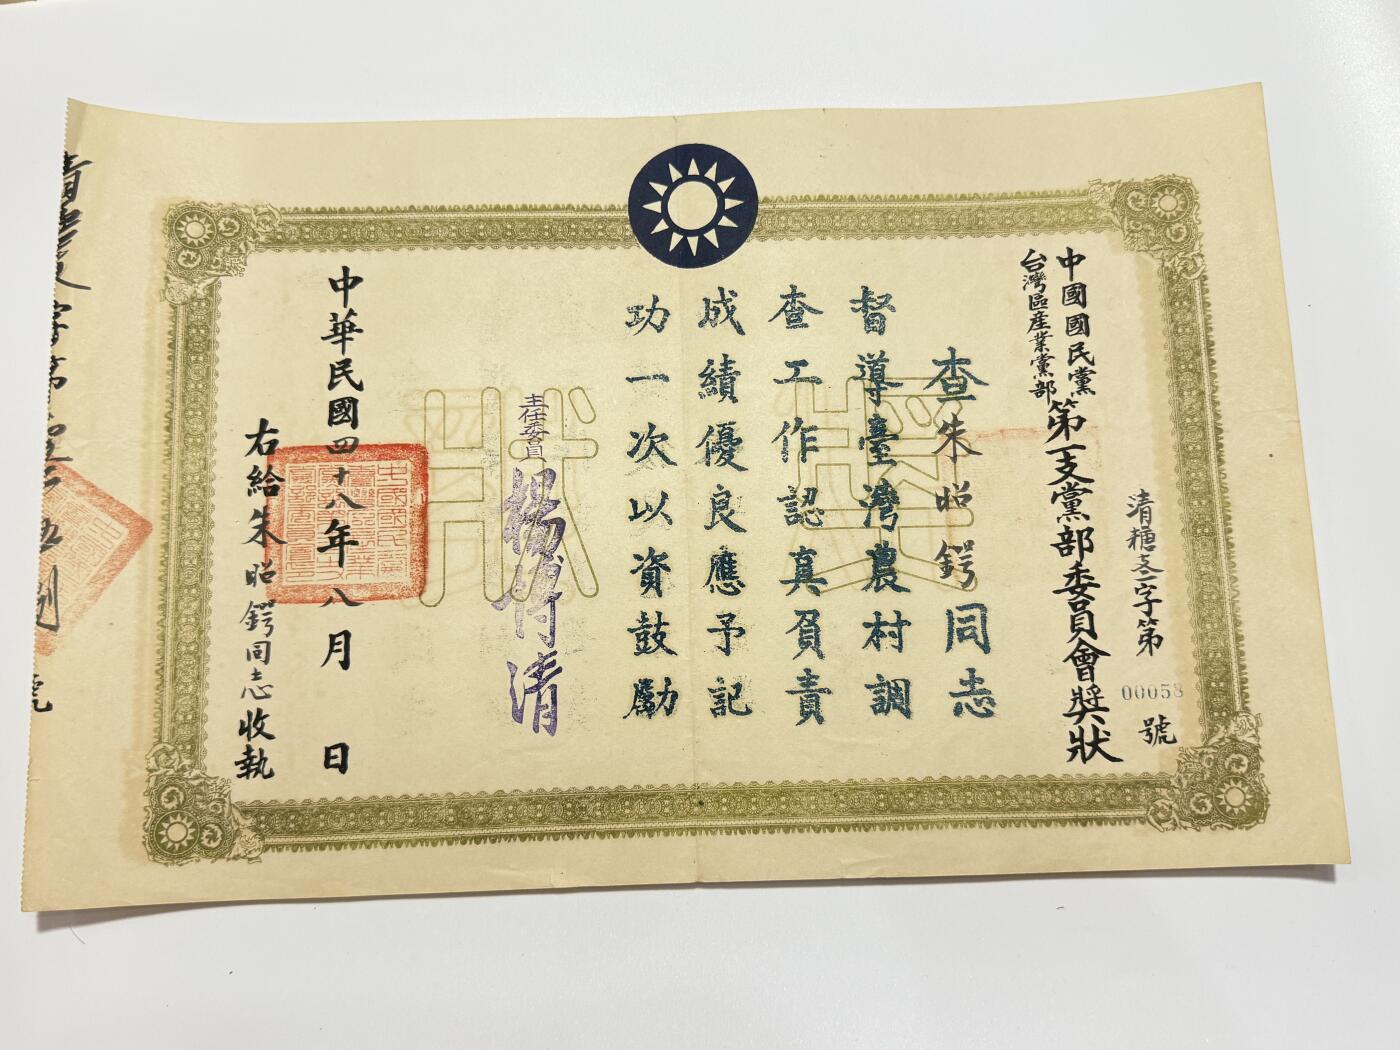 清糖支一字第00058號
中國國民黨
台灣區產業黨部
第一支黨部委員會獎狀
查朱昭鍔同志
督導臺灣農村調
查工作認真負責
成績優良應予記
功一次以資鼓勵
獎狀
主任委員
中華民國四十八年八月 日
右給朱昭鍔同志收執